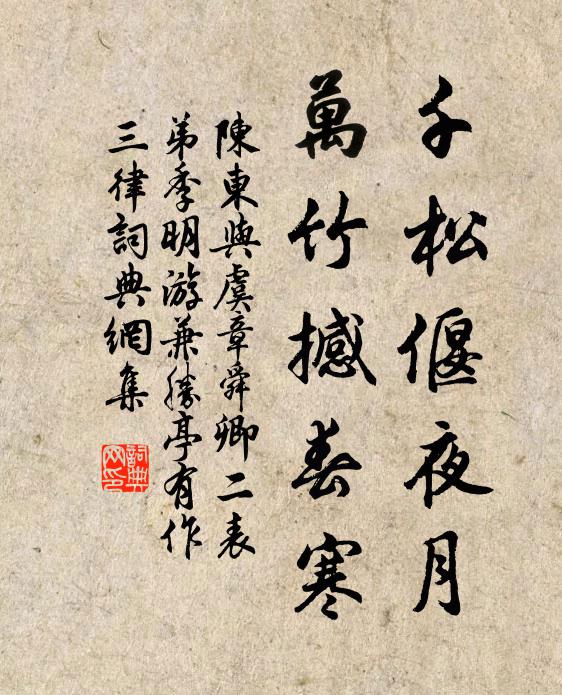 千松偃夜月
萬竹撼春寒
陳東與虞章舜卿二表
弟季明游兼勝亭有作
三律詞典網集
詞典
网印